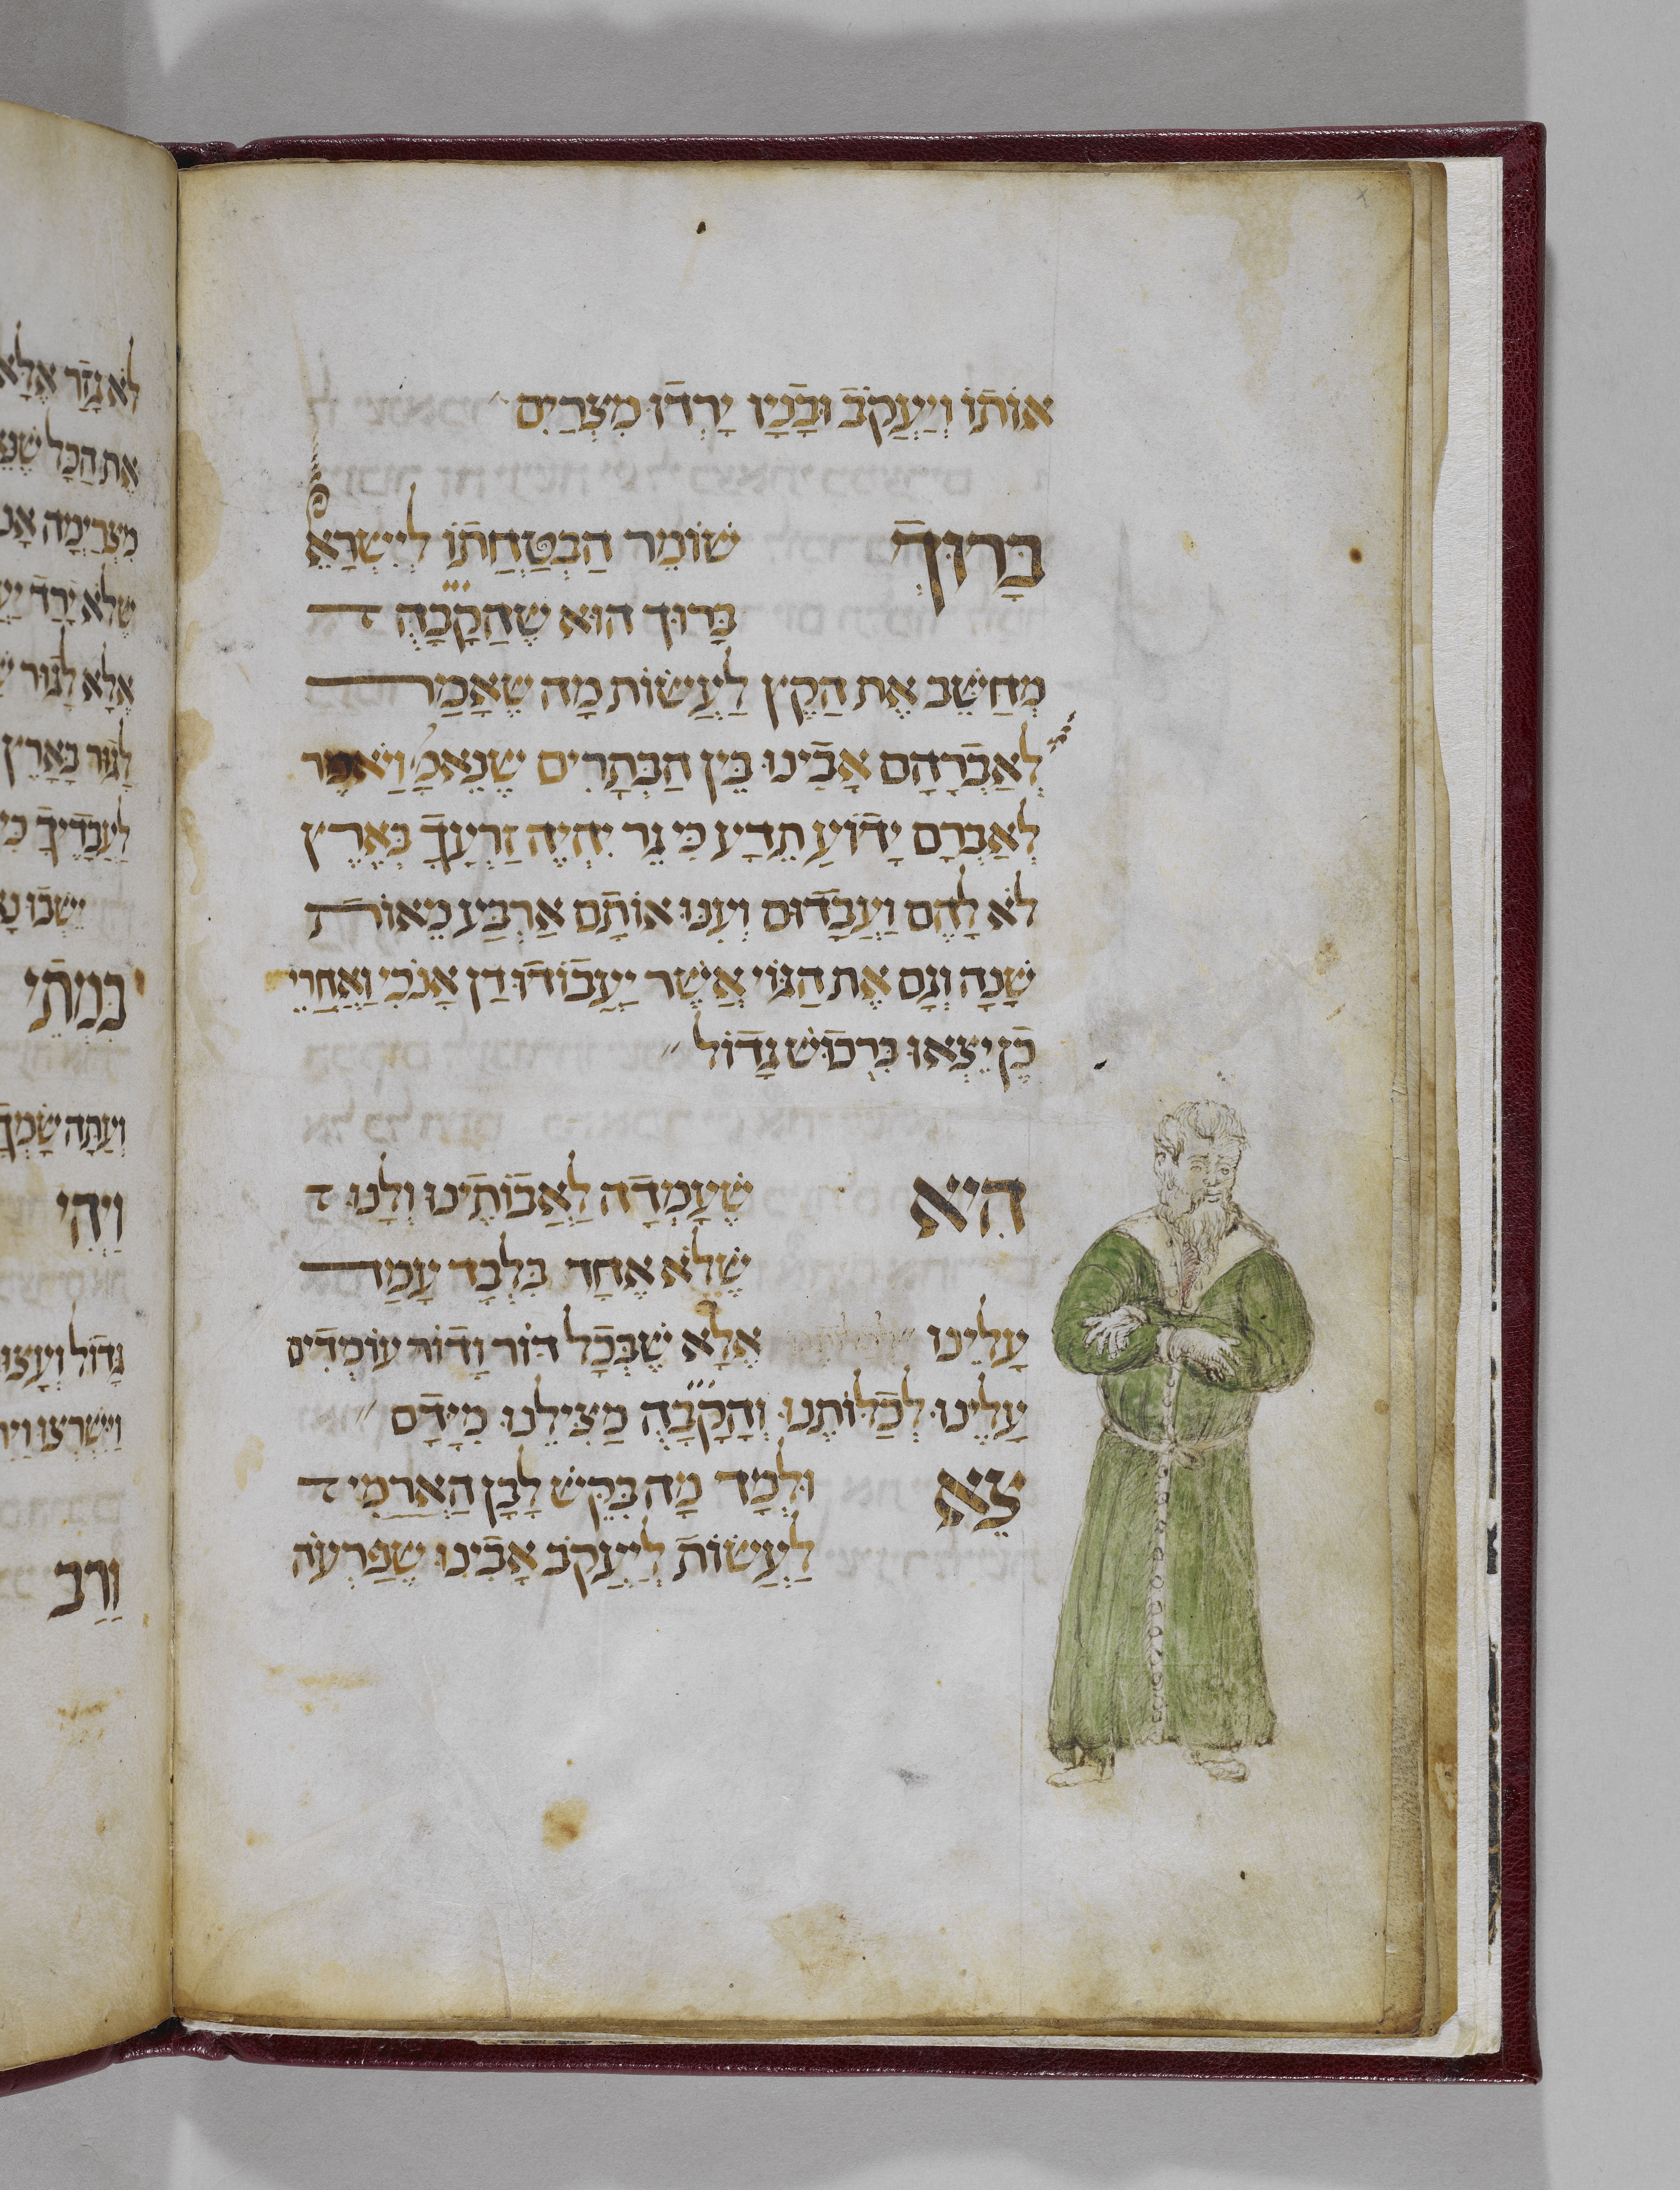 אוֹתוֹ וְיַעֲקֹב וּבָנָיו יָרְדוּ מִצְרַיִם
בָּרוּךְ שׁוֹמֵר הַבְטָחָתוֹ לְיִשְׂרָאֵל
בָּרוּךְ הוּא שֶׁהַקָבָּהֶ
מְחַשֵּׁב אֶת הַקֵץ לַעֲשׂוֹת מָה שֶׁאָמַר
לְאַבְרָהָם אָבִינוּ בֵּין הַבְּתָרִים שֶׁנֶאֱמַ' וַיֹאמֶר
לְאַבְרָם יָדוֹעַ תֵּדַע כִּי גֵר יִהְיֶה זַרְעֲךָ בְּאֶרֶץ
לֹא לָהֶם וַעֲבָדוּם וְעִנּוּ אוֹתָם אַרְבַּע מֵאוֹת
שָׁנָה וְגַם אֶת הַגּוֹי אֲשֶׁר יַעֲבוֹדוּ דָן אָנֹכִי וְאַחֲרֵי
כֵן יֵצְאוּ בִּרְכוּשׁ גָדוֹל
הִיא שֶׁעָמְדָה לַאֲבוֹתֵינוּ וְלָנוּ
שֶׁלֹא אֶחָד בִּלְבָד עָמַד
עָלֵינוּ אֶלָא שֶׁבְּכָל דּוֹר וָדוֹר עוֹמְדִים
עָלֵינוּ לְכַלוֹתֵנוּ וְהָקָבָּהֶ מַצִילֵנוּ מִיָדָם
צֵא וּלְמַד מָה בִּקֵשׁ לָבָן הָאֲרַמִי
לַעֲשׂוֹת לְיַעֲקֹב אָבִינוּ שֶׁפַרְעֹה
לֹא גָזַר אֶלָא
אֶת הַכָל
מִצְרַיְמָה
שֶׁלֹא יָרַד
אֶלָא לָגוּר
לָגוּר בָּאָרֶץ
לַעֲבָדֶיךָ כִּי
יֵשְׁבוּ
בִּמְתֵי
וְעַתָּה שָׂמְךָ
וַיְהִי
גָדוֹל וְעָצוּ
וַיִּשְׁרְצוּ
וָרַב